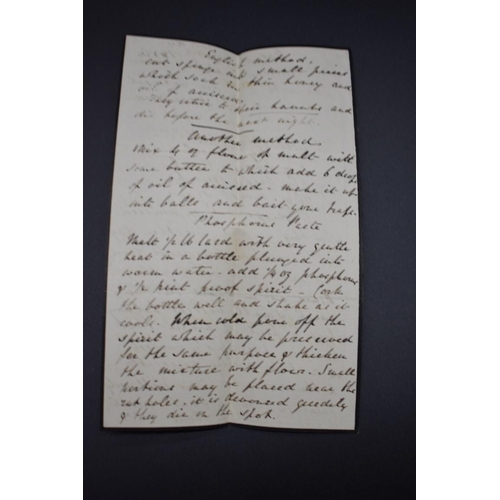 English method.
cut sponge into small pieces
which soak in thin honey and
oil of aniseed.
They retire to their haunts and
die before the next night.
Another method.
Mix 4 oz of flour of malt with
some butter to which add 6 drops
of oil of aniseed. make it up
into balls and bait your traps.
Phosphorus Paste
Melt lb lard with very gentle
heat in a bottle plunged into
warm water. add oz phosphorus
& pint proof spirit - Cork
the bottle well and shake as it
cools. When cold pour off the
spirit which may be preserved
for the same purpose & thicken
the mixture with flour. Small
portions may be placed near the
rat holes. it is devoured greedily
& they die on the spot.